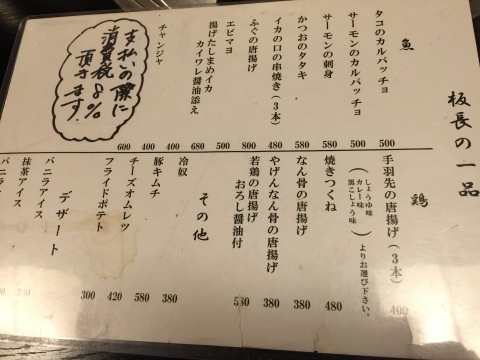 板長の一品
魚
タコのカルパッチョ 500
サーモンのカルパッチョ 500
サーモンの刺身 580
かつおのタタキ 580
イカの口の串焼き(3本) 480
ふぐの唐揚げ 800
エビマヨ 500
揚げたしまめイカ
カイワレ醤油添え 680
チャンジャ 400
400
600
支払いの際に
消費税8%
頂きます。
鶏
手羽先の唐揚げ(3本) 400
(しょうゆ味
カレー味
黒こしょう味)よりお選び下さい。
焼きつくね 480
なん骨の唐揚げ 380
やげんなん骨の唐揚げ 380
若鶏の唐揚げ
おろし醤油付 530
その他
冷奴
豚キムチ 380
チーズオムレツ 580
フライドポテト 420
300
デザート
バニラアイス
抹茶アイス
バニラ